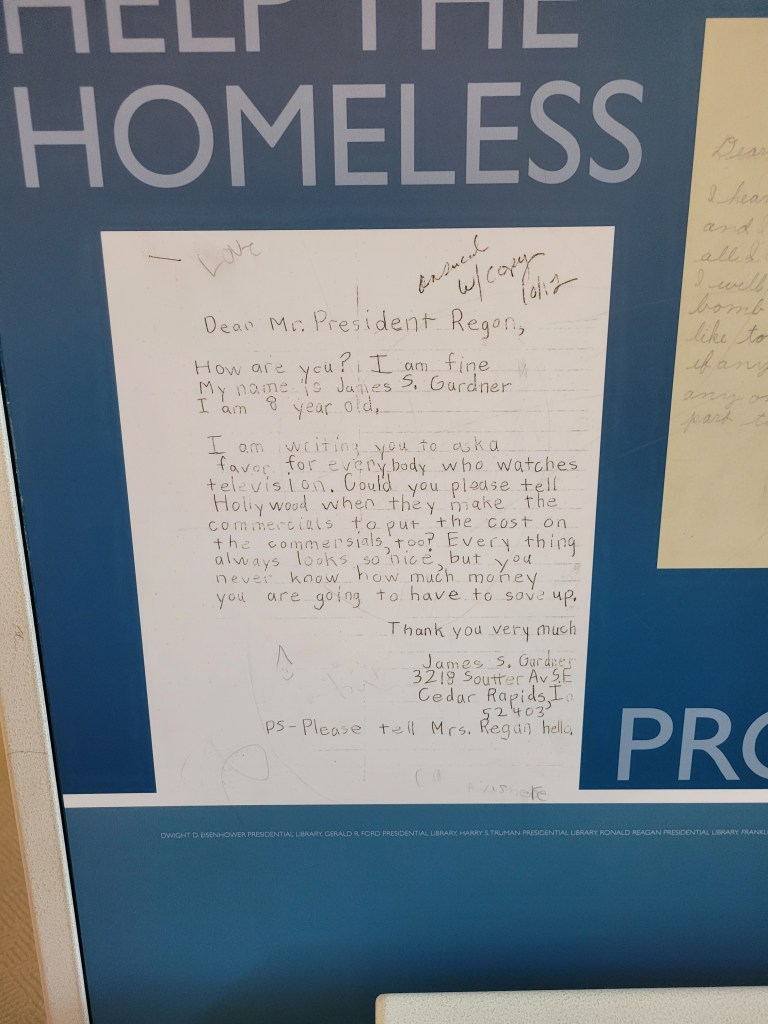 HELP THE
HOMELESS
Love
answered
w/copy
10/12
Dear Mr. President Regan,
How are you? I am fine
My name is James S. Gardner
I am 8 year old.
I am writing you to ask a
favor for everybody who watches
television. Could you please tell
Hollywood when they make the
commercials to put the cost on
the commersials, too? Every thing
always looks so nice, but you
never know how much money
you are going to have to save up.
Thank you very much
James S. Gardner
3218 Soutter Av S.E
Cedar Rapids, Ia
52403
PS-Please tell Mrs. Regan hello.
Dear
I hear
and I
all I
I will
bomb
like to
if any
any o
part t
PRO
DWIGHT D. EISENHOWER PRESIDENTIAL LIBRARY, GERALD R. FORD PRESIDENTIAL LIBRARY, HARRY S. TRUMAN PRESIDENTIAL LIBRARY, RONALD REAGAN PRESIDENTIAL LIBRARY, FRANKLI